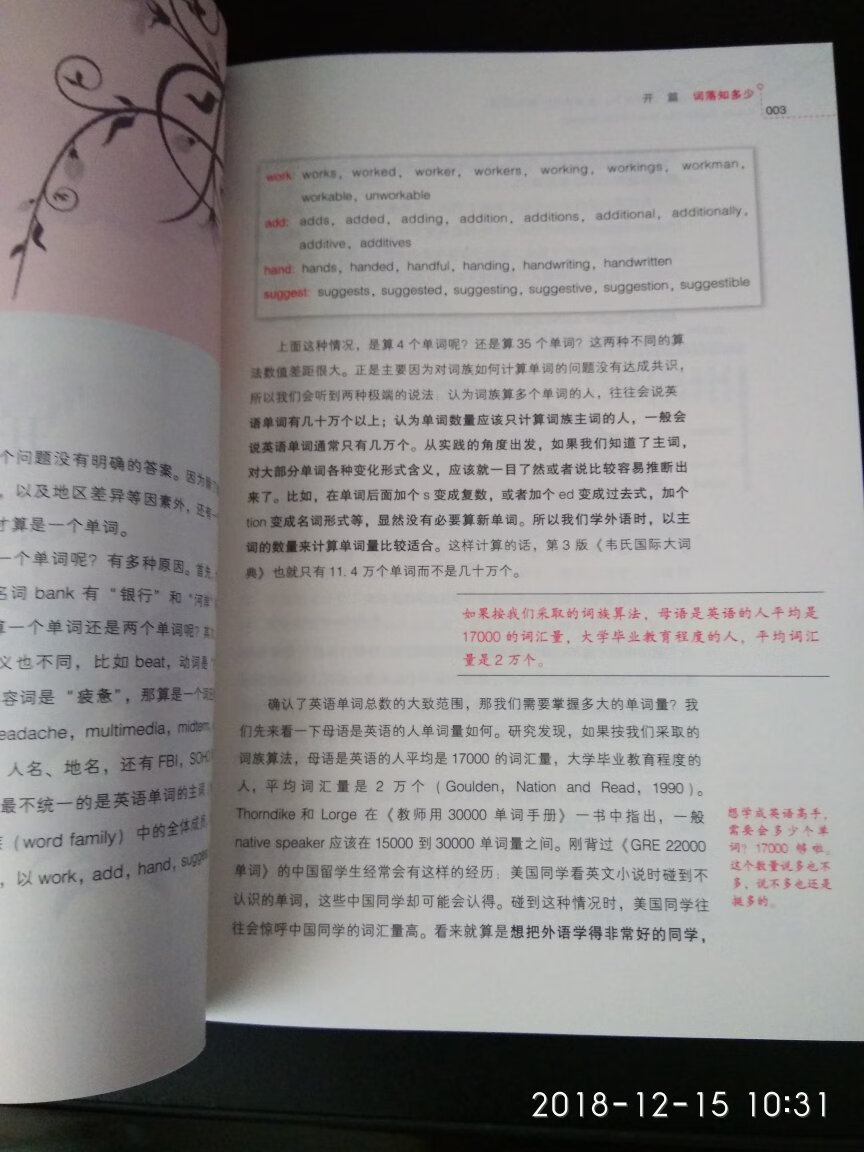 个问题没有明确的答案。因为
，以及地区差异等因素外，还有一
才算是一个单词。
一个单词呢？有多种原因。首先，
名词 bank 有“银行”和“河岸”
算一个单词还是两个单词呢？其
义也不同，比如 beat，动词是“
容词是“疲惫”，那算是一个词
eadache，multimedia，midterm，
人名、地名，还有 FBI，SOHO
最不统一的是英语单词的主词
（word family）中的全体成员
，以 work，add，hand，sugges
开 篇 词落知多少
003
work: works，worked，worker，workers，working，workings，workman，
workable，unworkable
add: adds，added，adding，addition，additions，additional，additionally，
additive，additives
hand: hands，handed，handful，handing，handwriting，handwritten
suggest: suggests，suggested，suggesting，suggestive，suggestion，suggestible
上面这种情况，是算 4 个单词呢？还是算 35 个单词？这两种不同的算
法数值差距很大。正是主要因为对词族如何计算单词的问题没有达成共识，
所以我们会听到两种极端的说法：认为词族算多个单词的人，往往会说英
语单词有几十万个以上；认为单词数量应该只计算词族主词的人，一般会
说英语单词通常只有几万个。从实践的角度出发，如果我们知道了主词，
对大部分单词各种变化形式含义，应该就一目了然或者说比较容易推断出
来了。比如，在单词后面加个 s 变成复数，或者加个 ed 变成过去式，加个
tion 变成名词形式等，显然没有必要算新单词。所以我们学外语时，以主
词的数量来计算单词量比较适合。这样计算的话，第 3 版《韦氏国际大词
典》也就只有 11.4 万个单词而不是几十万个。
如果按我们采取的词族算法，母语是英语的人平均是
17000 的词汇量，大学毕业教育程度的人，平均词汇
量是 2 万个。
确认了英语单词总数的大致范围，那我们需要掌握多大的单词量？我
们先来看一下母语是英语的人单词量如何。研究发现，如果按我们采取的
词族算法，母语是英语的人平均是 17000 的词汇量，大学毕业教育程度的
人，平均词汇量是 2 万个（Goulden，Nation and Read，1990）。
Thorndike 和 Lorge 在《教师用 30000 单词手册》一书中指出，一般
native speaker 应该在 15000 到 30000 单词量之间。刚背过《GRE 22000
单词》的中国留学生经常会有这样的经历：美国同学看英文小说时碰到不
认识的单词，这些中国同学却可能会认得。碰到这种情况时，美国同学往
往会惊呼中国同学的词汇量高。看来就算是想把外语学得非常好的同学，
想学成英语高手，
需要会多少个单
词？17000 够啦。
这个数量说多也不
多，说不多也还是
挺多的。
2018-12-15 10:31